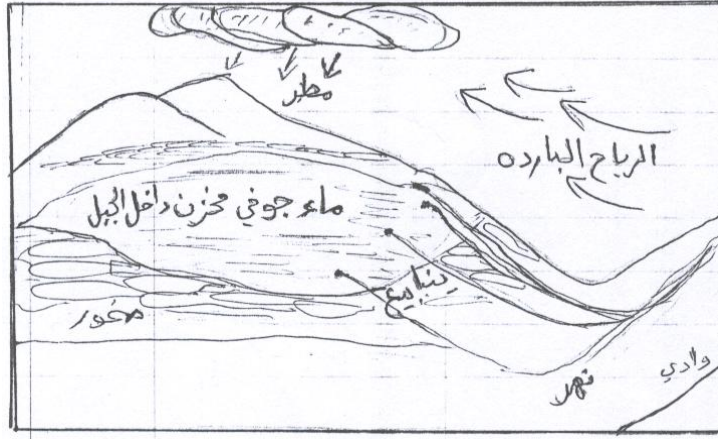 مطر
الرياح البارده
ماء جوفي مخزن داخل الجبل
ينابيع
صخور
وادي
نهر